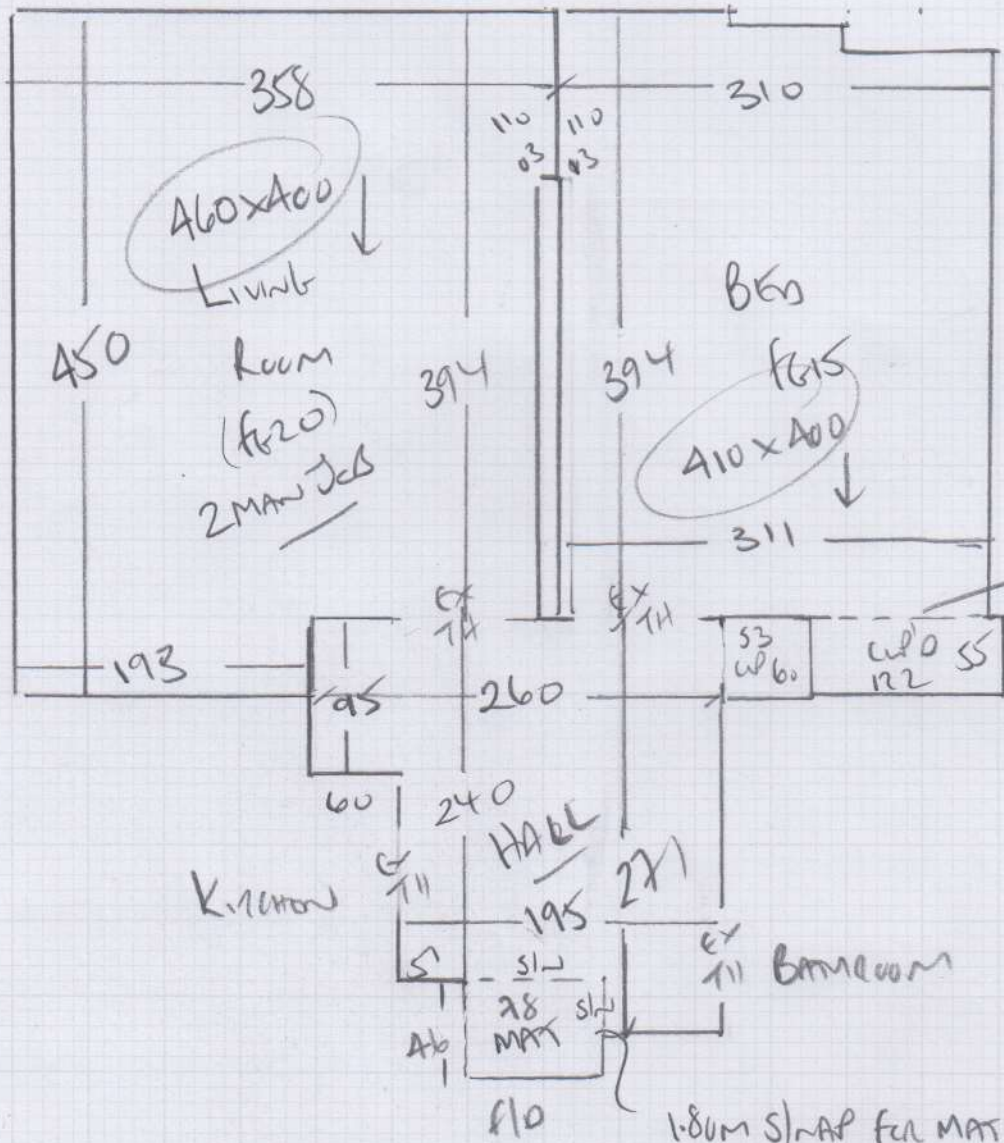 358
310
110 110
03 03
460x400
LIVING
ROOM
(FG20)
2 MAN JOB
450
394
394
BED
FG15
410 x 400
311
EX
TH
EX
TH
53
CUP 60
CUP'D 55
122
193
95
260
60
240
HALL
271
KITCHEN
EX
TH
195
EX
TH
BATHROOM
5
S/N
S/N
78
MAT
46
F/D
1.80M S/NAP FOR MAT